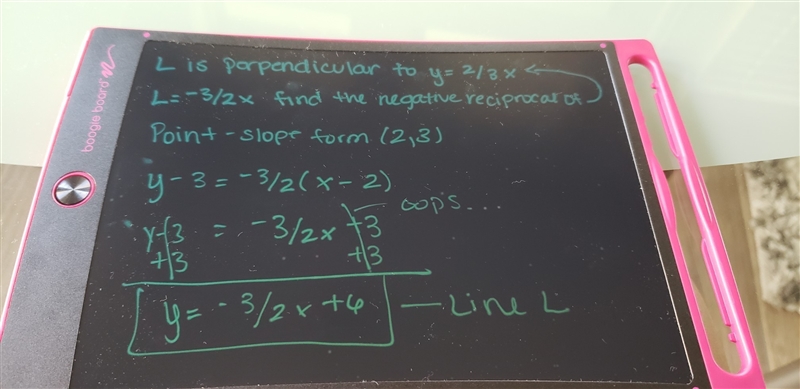 boogie board
L is perpendicular to y= 2/3x
L= -3/2x find the negative reciprocal of
Point-slope form (2,3)
y-3 = -3/2(x-2)
oops...
y-3 = -3/2x +3
+3 +3
y= -3/2x +6 — Line L